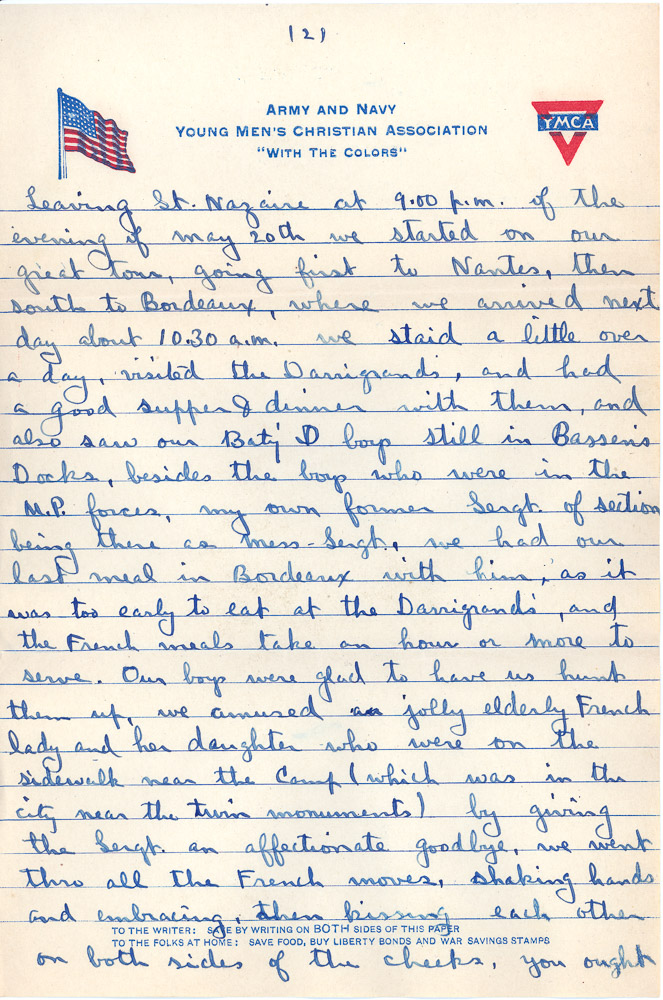 (2)
ARMY AND NAVY
YOUNG MEN'S CHRISTIAN ASSOCIATION
"WITH THE COLORS"
YMCA
Leaving St. Nazaire at 9.00 p.m. of the
evening of may 20th we started on our
great tour, going first to Nantes, then
south to Bordeaux, where we arrived next
day about 10.30 a.m. we staid a little over
a day, visited the Darrigrands, and had
a good supper & dinner with them, and
also saw our Baty D boys still in Bassens
Docks, besides the boys who were in the
M.P. forces, my own former Sergt. of section
being there as mess-Sergt., we had our
last meal in Bordeaux with him, as it
was too early to eat at the Darrigrands, and
the French meals take an hour or more to
serve. Our boys were glad to have us hunt
them up, we amused a jolly elderly French
lady and her daughter who were on the
sidewalk near the Camp (which was in the
city near the twin monuments) by giving
the Sergt. an affectionate goodbye, we went
thro all the French moves, shaking hands
and embracing, then kissing each other
TO THE WRITER: SAVE BY WRITING ON BOTH SIDES OF THIS PAPER
TO THE FOLKS AT HOME: SAVE FOOD, BUY LIBERTY BONDS AND WAR SAVINGS STAMPS
on both sides of the cheeks, you ought